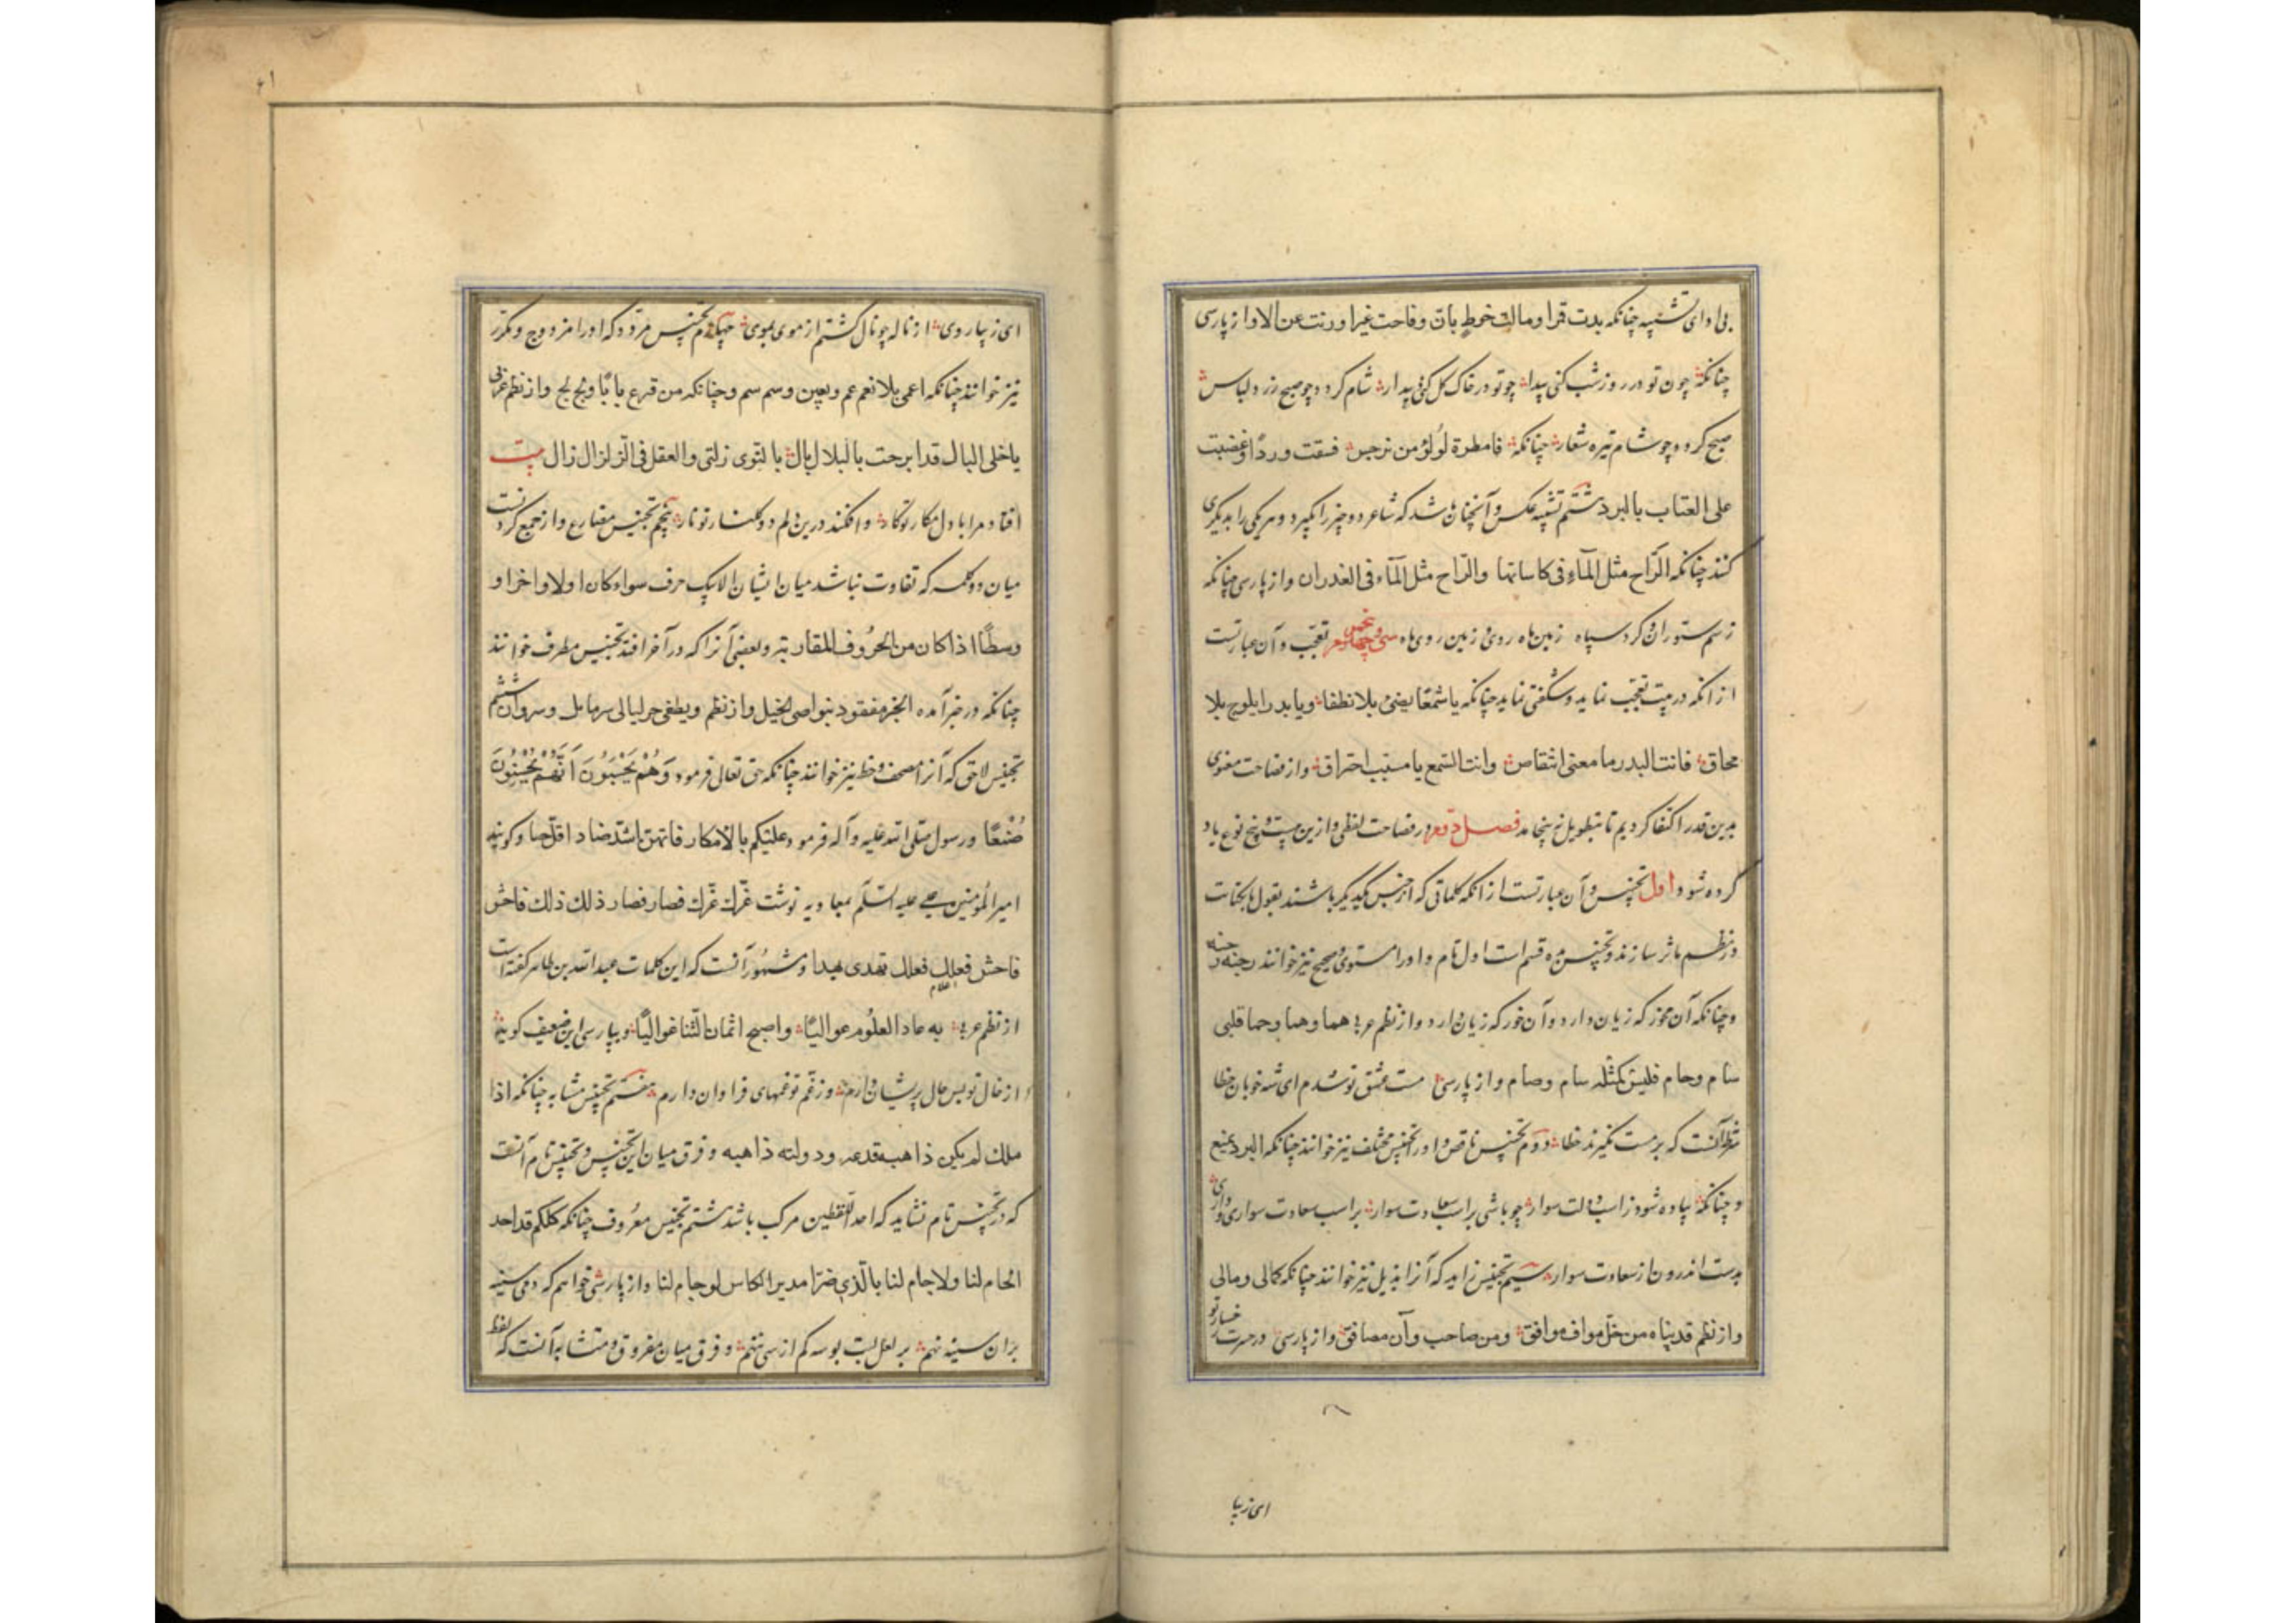 بی ادای تشبیه چنانکه بدت قمرا ومالت خوط بان وفاحت عنبرا ورنت غزالا و از پارسی
چنانکه چون تو در روز شب کنی پیدا چو تو در خاک گل کنی پیدار شام گردد چو صبح زرد لباس
صبح گردد چو شام تیره شعار چنانکه فامطرة لؤلؤ من نرجس فسقت وردا وعضبت
علی العتاب بالبرد ششم تشبیه عکس و آنچنان باشد که شاعر دو چیز را بگیرد و هر یکی را بدیگری
کنند چنانکه الراح مثل المآء فی کاساتها والراح مثل المآء فی الغدران و از پارسی چنانکه
ز سم ستوران و گرد سپاه زمین ماه روی و زمین روی ماه سی و پنجم تعجب و آن عبارتست
از آنکه در بیت تعجب نماید و شگفتی نماید چنانکه یا شمعا یضیء بلا نطفا ویا بدرا یلوح بلا
محاق فانت البدر ما معنی انتقاص وانت الشمع یا سبب احتراق و از فصاحت معنوی
بدین قدر اکتفا کردیم تا بتطویل نینجامد فصل دوم در فصاحت لفظی و ازین بیست و پنج نوع یاد
کرده شود اول تجنیس و آن عبارتست از آنکه کلماتی که از جنس یکدیگر باشند بقول یا بکتابت
در نظم یا نثر سازند و تجنیس ده قسم است اول تام و او را مستوی و صحیح نیز خوانند جنه رجنه
و چنانکه آن مخور که زیان دارد و آن خور که زیان دارد و از نظم عربی هما وهما وحما قلبی
سام وحام فلیس کمثله سام وحام و از پارسی مست عشق تو شدم ای شه خوبان خطا
شرط آنست که بر مست نگیرند خطا دوم تجنیس ناقص و او را تجنیس مختلف نیز خوانند چنانکه البرد یمنع
و چنانکه پیاده شود ز اسب دولت سوار چو باشی بر اسب سعادت سوار بر اسب سعادت سواری و داری
بدست اندرون از سعادت سوار سیم تجنیس زاید که آنرا مذیل نیز خوانند چنانکه کمالی ومالی
و از نظم قدیناه من خل مواف موافق ومن صاحب وآن مصافق و از پارسی در حسرت رخسار تو
ای زیبا
ای زیبا روی از ناله چو نال گشتم از موی بموی چهارم تجنیس مردد که او را مزدوج و مکرر
نیز خوانند چنانکه اعمی بلا نعم عم وبعین وسم سم و چنانکه من قرع بابا ولج ولج و از نظم عربی
یا خلی البال قد ابرحت بالبلال بال بالنوی زلتی والعقل فی الزلزال زال بیت
افتاد مرا با دل مکار تو کار و افکند درین دلم دو گلنار تو نار پنجم تجنیس مضارع و از جمع کردنست
میان دو کلمه که تفاوت نباشد میان ایشان الا بیک حرف سواء کان اولا او اخرا او
وسطا اذا کان من الحروف المتقاربة و بعضی آنرا که در آخر افتد تجنیس مطرف خوانند
چنانکه در خبر آمده الخیر معقود بنواصی الخیل و از نظم ویطفی حر لیالی سرمایل وسروان ششم
تجنیس لاحق که آنرا مصحف و خط نیز خوانند چنانکه حق تعالی فرمود وَهُمْ يَحْسَبُونَ أَنَّهُمْ يُحْسِنُونَ
صُنْعًا و رسول صلی الله علیه و آله فرمود علیکم بالابکار فانهن اشد حبا و اقل خبا و گویند
امیر المؤمنین علی علیه السلم بمعاویه نوشت غرك عزك فصار قصار ذلك ذلك فاخش
فاحش فعلك فعلك تهدی بهدا و مشهور آنست که این کلمات عبدالله بن طاهر گفته است
از نظم عربی به عاد العلوم عوالیا واصبح اثمان الثنا غوالیا و بپارسی این ضعیف گوید
از خال تو بس حال پریشان دارم وز غم تو غمهای فراوان دارم هفتم تجنیس مشابه چنانکه اذا
ملك لم یکن ذا هبه فدعه ودولته ذاهبه و فرق میان این تجنیس و تجنیس تام آنست
که در تجنیس تام نشاید که احد اللفظین مرکب باشد هشتم تجنیس مفروق چنانکه کلکم قد اخذ
الجام لنا ولا جام لنا ما الذی ضر مدیر الکاس لو جاملنا و از پارسی خواهم که دمی سینه
بران سینه نهم بر لعل لبت بوسه کم از سی ننهم و فرق میان مفروق و متشابه آنست که لفظ